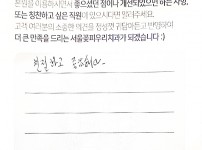 본원을 이용하시면서 좋으셨던 점이나 개선되었으면 하는 사항,
또는 칭찬하고 싶은 직원이 있으시다면 말려주세요.
고객 여러분의 소중한 의견을 정성껏 귀담아듣고 반영하여
더 큰 만족을 드리는 서울꽃피우리치과가 되겠습니다 :)
친절하고 좋았어요~